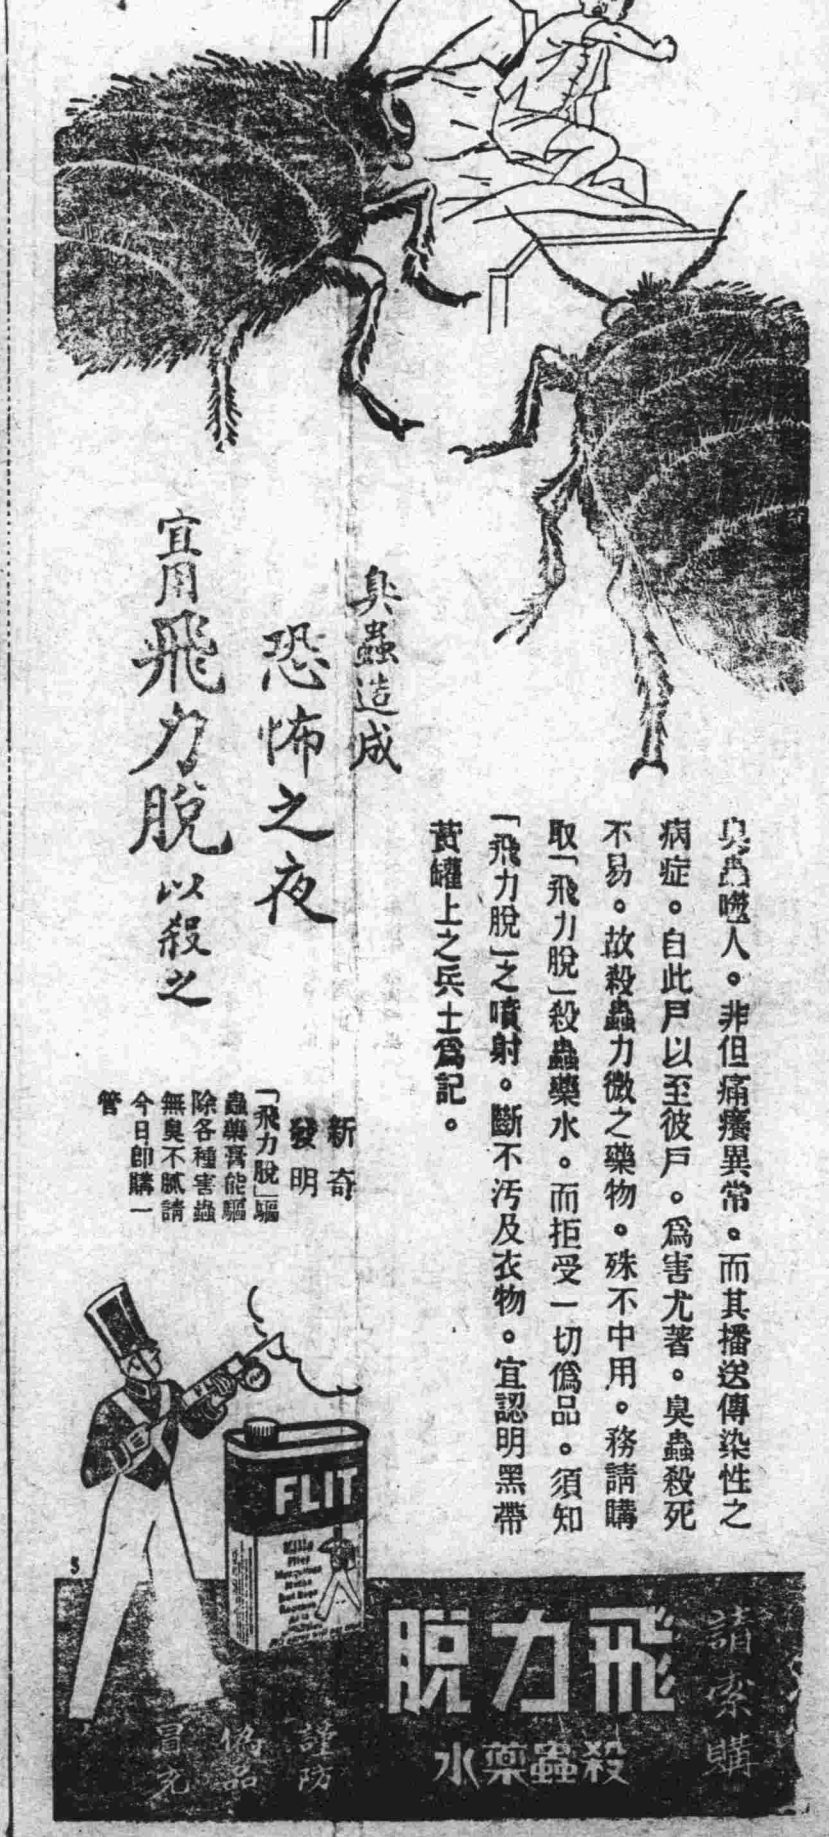 臭蟲造成
恐怖之夜
宜用飛力脫以殺之
臭蟲噬人。非但痛癢異常。而其播送傳染性之
病症。自此戶以至彼戶。爲害尤著。臭蟲殺死
不易。故殺蟲力微之藥物。殊不中用。務請購
取「飛力脫」殺蟲藥水。而拒受一切僞品。須知
「飛力脫」之噴射。斷不汚及衣物。宜認明黑帶
黃罐上之兵士爲記。
新奇
發明
「飛力脫」驅
蟲藥膏能驅
除各種害蟲
無臭不膩請
今日卽購一
管
FLIT
Kills
Flies
Mosquitoes
Moths
Bed Bugs
5
請索購
飛力脫
殺蟲藥水
謹防
僞品
冒充